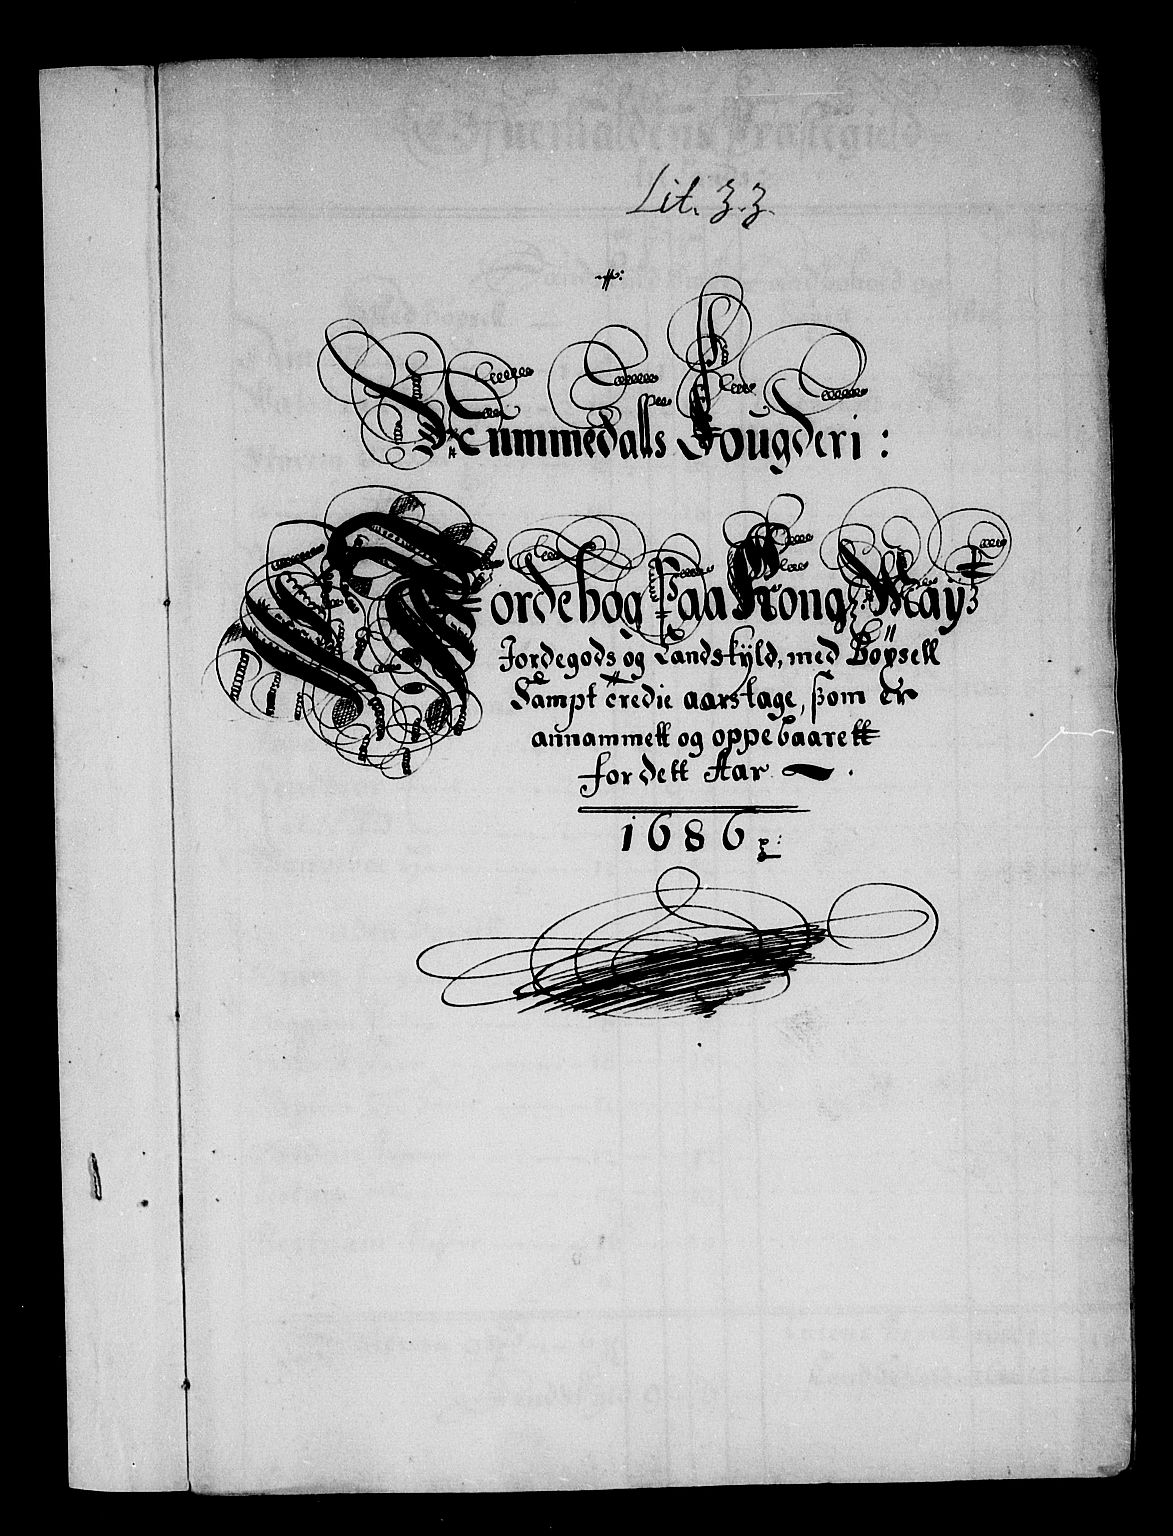 Lit. Z. Z.
Nummedals Fougderi:
Jordebog Paa Kong: Maÿ:
Jordegods og Landskÿld, med Böÿsell
Sampt tredie aarstage, som er
annammett og oppebaarett
for dett Aar
1686